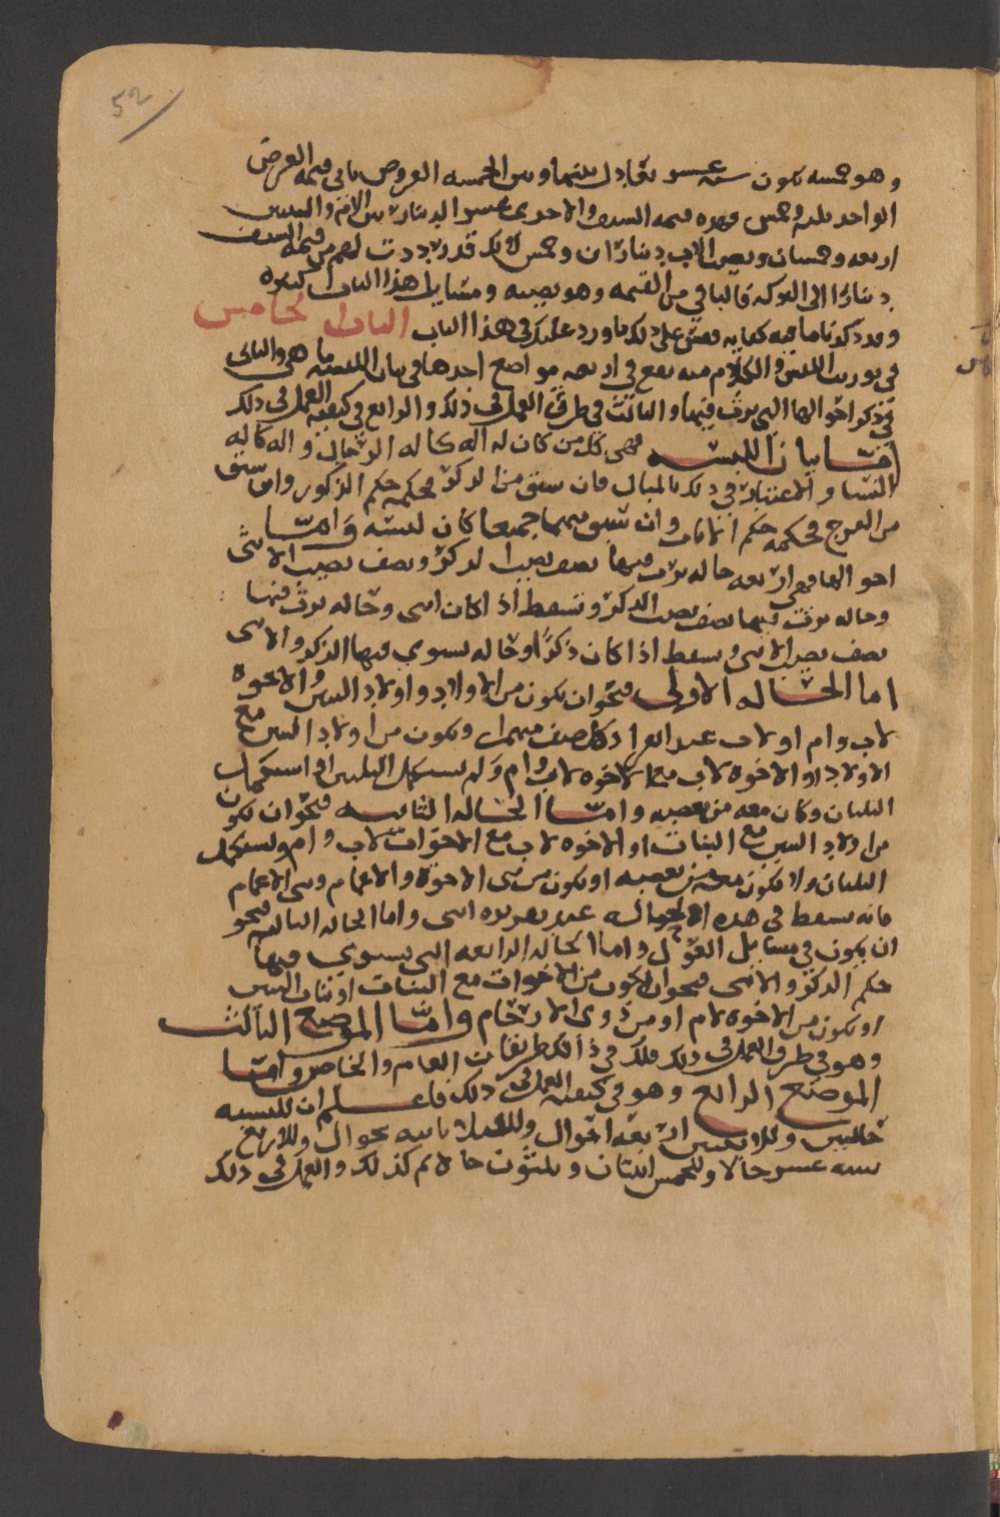 52
وهو خمسه يكون سته عشر تعادل بينها وبين الخمسه العروض باقي قيمه العرض
الواحد ثلثه وخمس فهذه قيمه السيف والاحدى عشر الدينار بين الام والبنتين
اربعه وخمسان ونصيب الاب ديناران وخمس لانك قد رددت لهم من قيمه السيف
دينارا الى التركه فالباقي من القيمه وهو نصيبه ومسايل هذا الباب كثيره
وقد ذكرنا ما فيه كفايه فقس على ذلك ما ورد عليك في هذا الباب الباب الخامس
في توريث اللبس والكلام منه يقع في اربعه مواضع احدها في بيان اللبسه ما هي والثاني
في ذكر احوالها التي يرث فيها والثالث في طرق العمل في ذلك والرابع في كيفيه العمل في ذلك
اما بيان اللبسه فهي كل من كان له اله كاله الرجال واله كاله
النسا والاعتبار في ذلك بالمبال فان سبق من الذكر فحكمه حكم الذكور وان سبق
من الفرج فحكمه حكم الاناث وان سبق منهما جميعا كان لبسه واما
احوالها فهي اربعه حاله يرث فيها نصف نصيب الذكر ونصف نصيب الانثى
وحاله يرث فيها نصف نصيب الذكر وتسقط اذا كان انثى وحاله يرث فيها
نصف نصيب الانثى وتسقط اذا كان ذكرا وحاله يستوي فيها الذكر والانثى
اما الحاله الاولى فنحو ان يكون من الاولاد واولاد البنين والاخوه
لاب وام او لاب عند انفراد كل صنف منهم او يكون من اولاد البنين مع
الاولاد او الاخوه لاب مع الاخوه لاب وام ولم يستكمل الثلثين او استكمل
الثلثان وكان معه من يعصبه واما الحاله الثانيه فنحو ان يكون
من اولاد البنين مع البنات او الاخوه لاب مع الاخوات لاب وام وتستكمل
الثلثان ولا يكون معه من يعصبه او يكون من بني الاخوه والاعمام وبني الاعمام
فانه يسقط في هذه الاحوال عند تقديره انثى واما الحاله الثالثه فنحو
ان يكون في مسايل العول واما الحاله الرابعه التي يستوي فيها
حكم الذكر والانثى فنحو ان يكون من الاخوات مع البنات او بنات البنين
او يكون من الاخوه لام او من ذوي الارحام واما الموضع الثالث
وهو في طرق العمل في ذلك فلك في ذلك طريقان العام والخاص واما
الموضع الرابع وهو في كيفيه العمل في ذلك فاعلم ان للبسه
حالين وللاثنين اربعه احوال وللثلاث ثمانيه احوال وللاربع
سته عشر حالا وللخمس اثنان وثلثون حالا ثم كذلك والعمل في ذلك